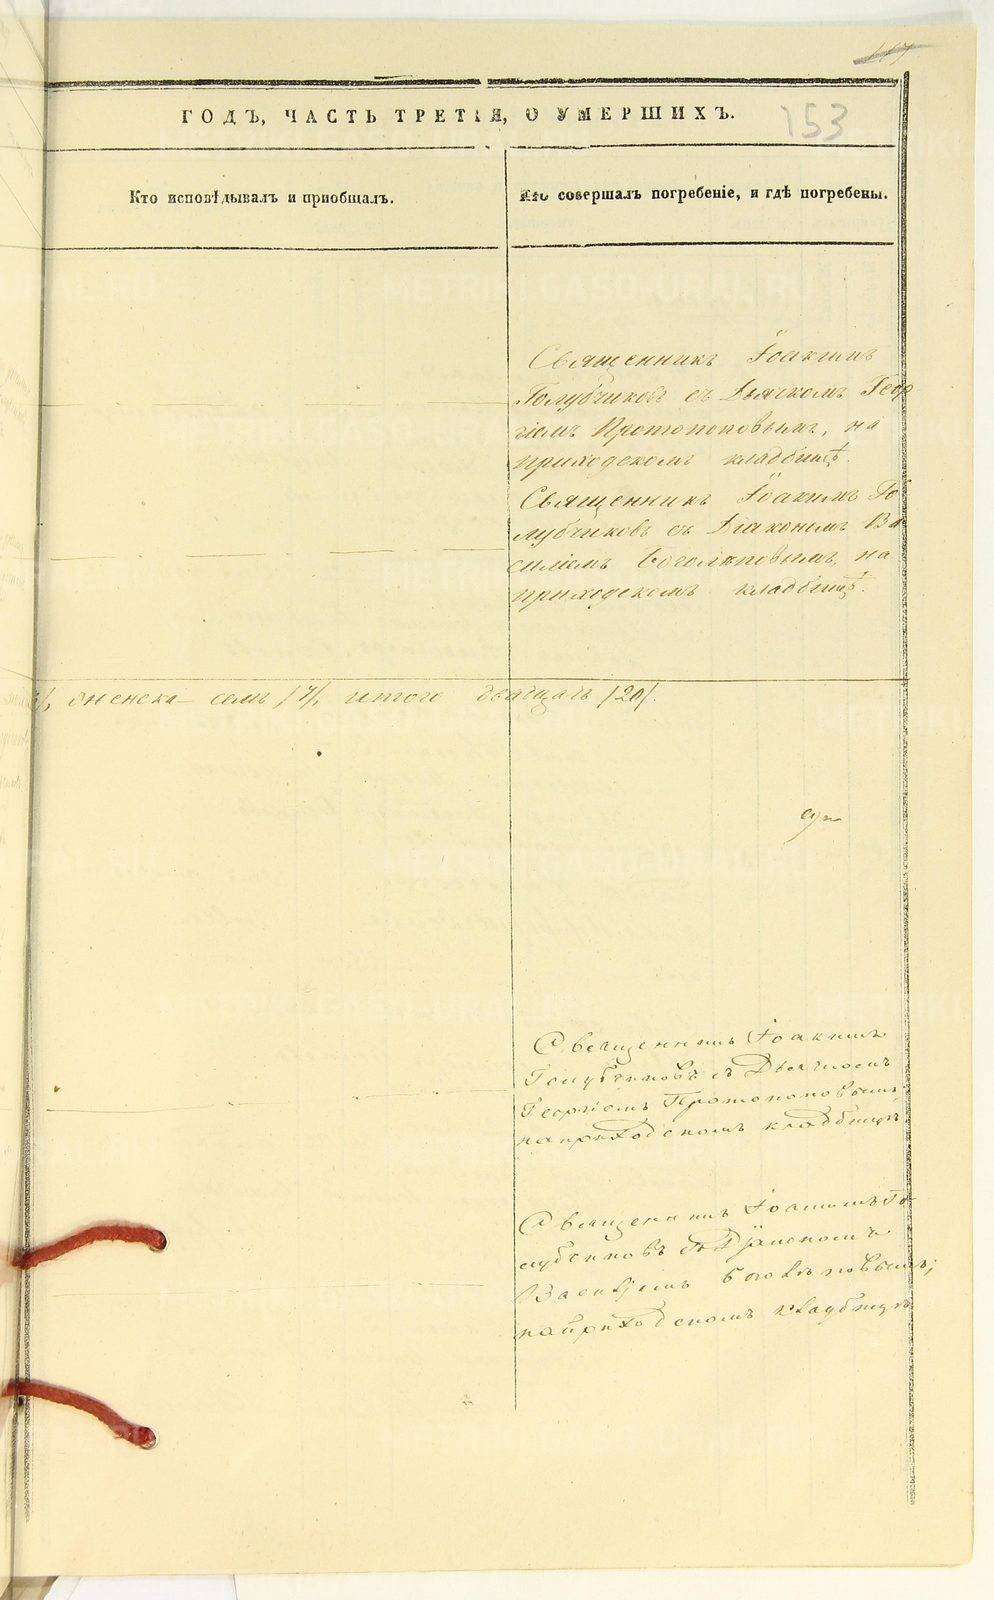 117
153
ГОДЪ, ЧАСТЬ ТРЕТІЯ, О УМЕРШИХЪ.
Кто исповѣдывалъ и приобщалъ.
Кто совершалъ погребеніе, и гдѣ погребены.
Священникъ Іоакимъ
Голубчиковъ съ Дьячкомъ Геор
гіемъ Протопоповымъ, на
приходскомъ кладбищѣ.
Священникъ Іоакимъ Го
лубчиковъ съ Діакономъ Ва
силіемъ Боголѣповымъ, на
приходскомъ кладбищѣ.
женска семь /7/, итого двадцать /20/.
Священникъ Іоакимъ
Голубчиковъ съ Дьячкомъ
Георгіемъ Протопоповымъ
на приходскомъ кладбищѣ
Священникъ Іоакимъ Го-
лубчиковъ съ Діакономъ
Василіемъ Боголѣповымъ,
на приходскомъ кладбищѣ
METRIKI.GASO-URAL.RU